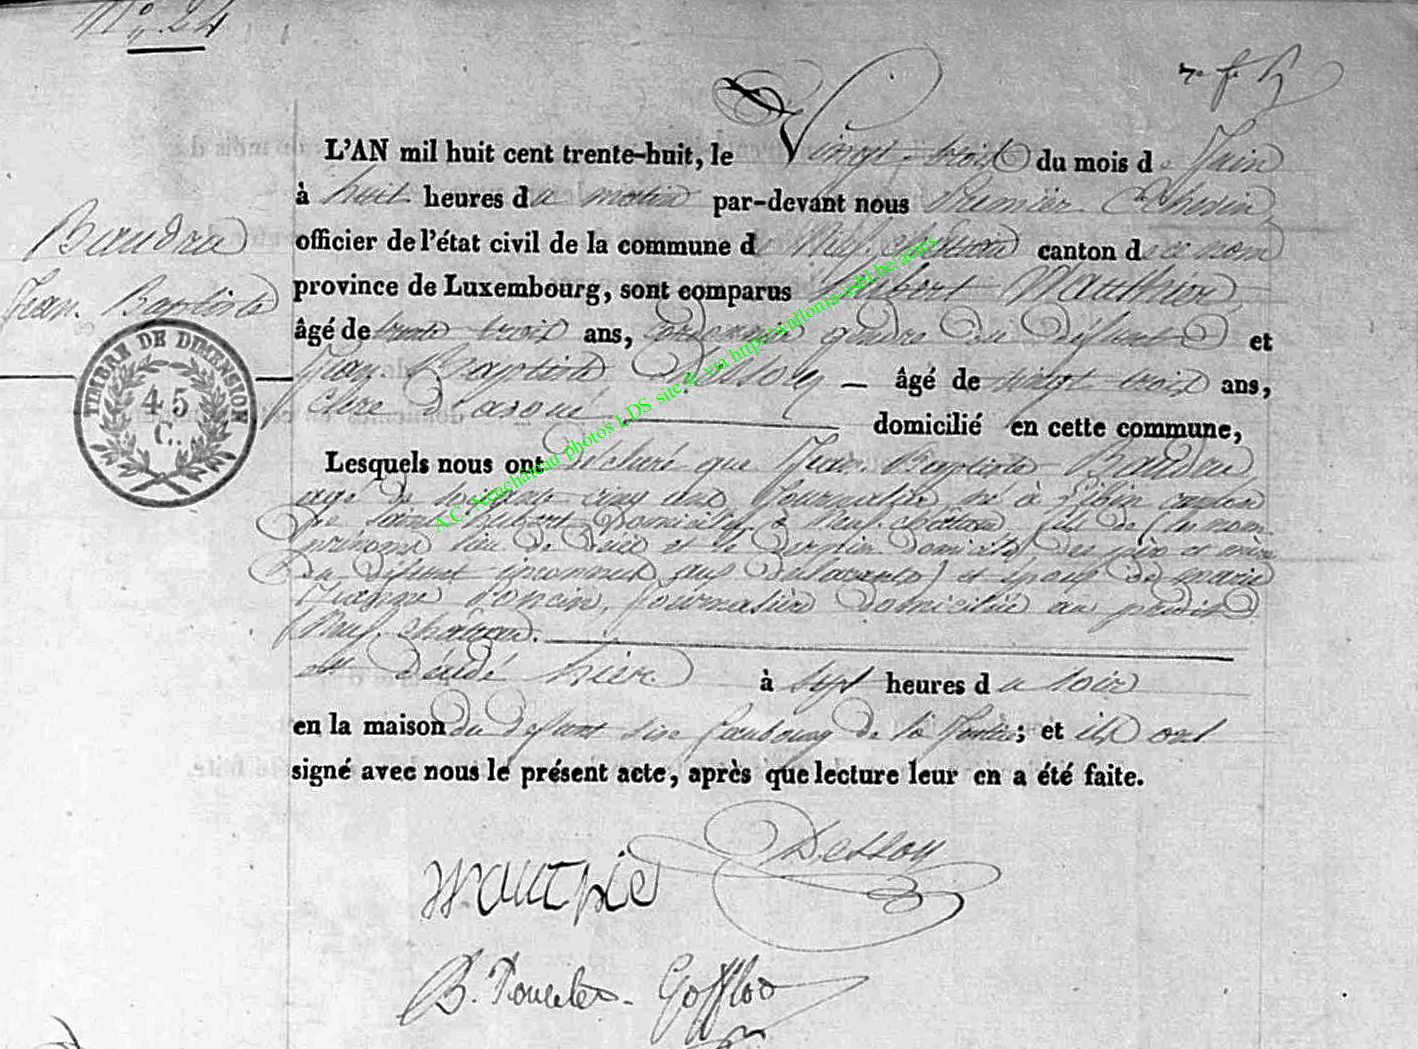 N° 24
L'AN mil huit cent trente-huit, le Vingt-trois du mois de Juin
à huit heures du matin par-devant nous Premier Echevin,
officier de l'état civil de la commune de Neufchâteau canton de ce nom
province de Luxembourg, sont comparus hubert Mauthier
âgé de trente trois ans, cordonnier gendre du défunt et
Jean Baptiste Dessoy — âgé de vingt trois ans,
Clerc d'avoué domicilié en cette commune,
Lesquels nous ont déclaré que Jean Baptiste Baudru
agé de soixante cinq ans Journalier né à canton
de Saint hubert domicilié à Neufchâteau, fils de les nom
prénoms lieu de décès et le dernier domicile des père et mère
du défunt inconnus aux déclarants) et époux de marie
Jeanne journalière domiciliée au prédit
Neufchâteau.
est décédé hier à sept heures du soir
en la maison du défunt sise faubourg de la ; et ils ont
signé avec nous le présent acte, après que lecture leur en a été faite.
Baudru
Jean. Baptiste
TIMBRE DE DIMENSION
45
C..
A.C. Neuchâteau photos LDS site & via http://wallonia-asbl.be/acgs
Dessoy
Mauthier
B. Goffloo